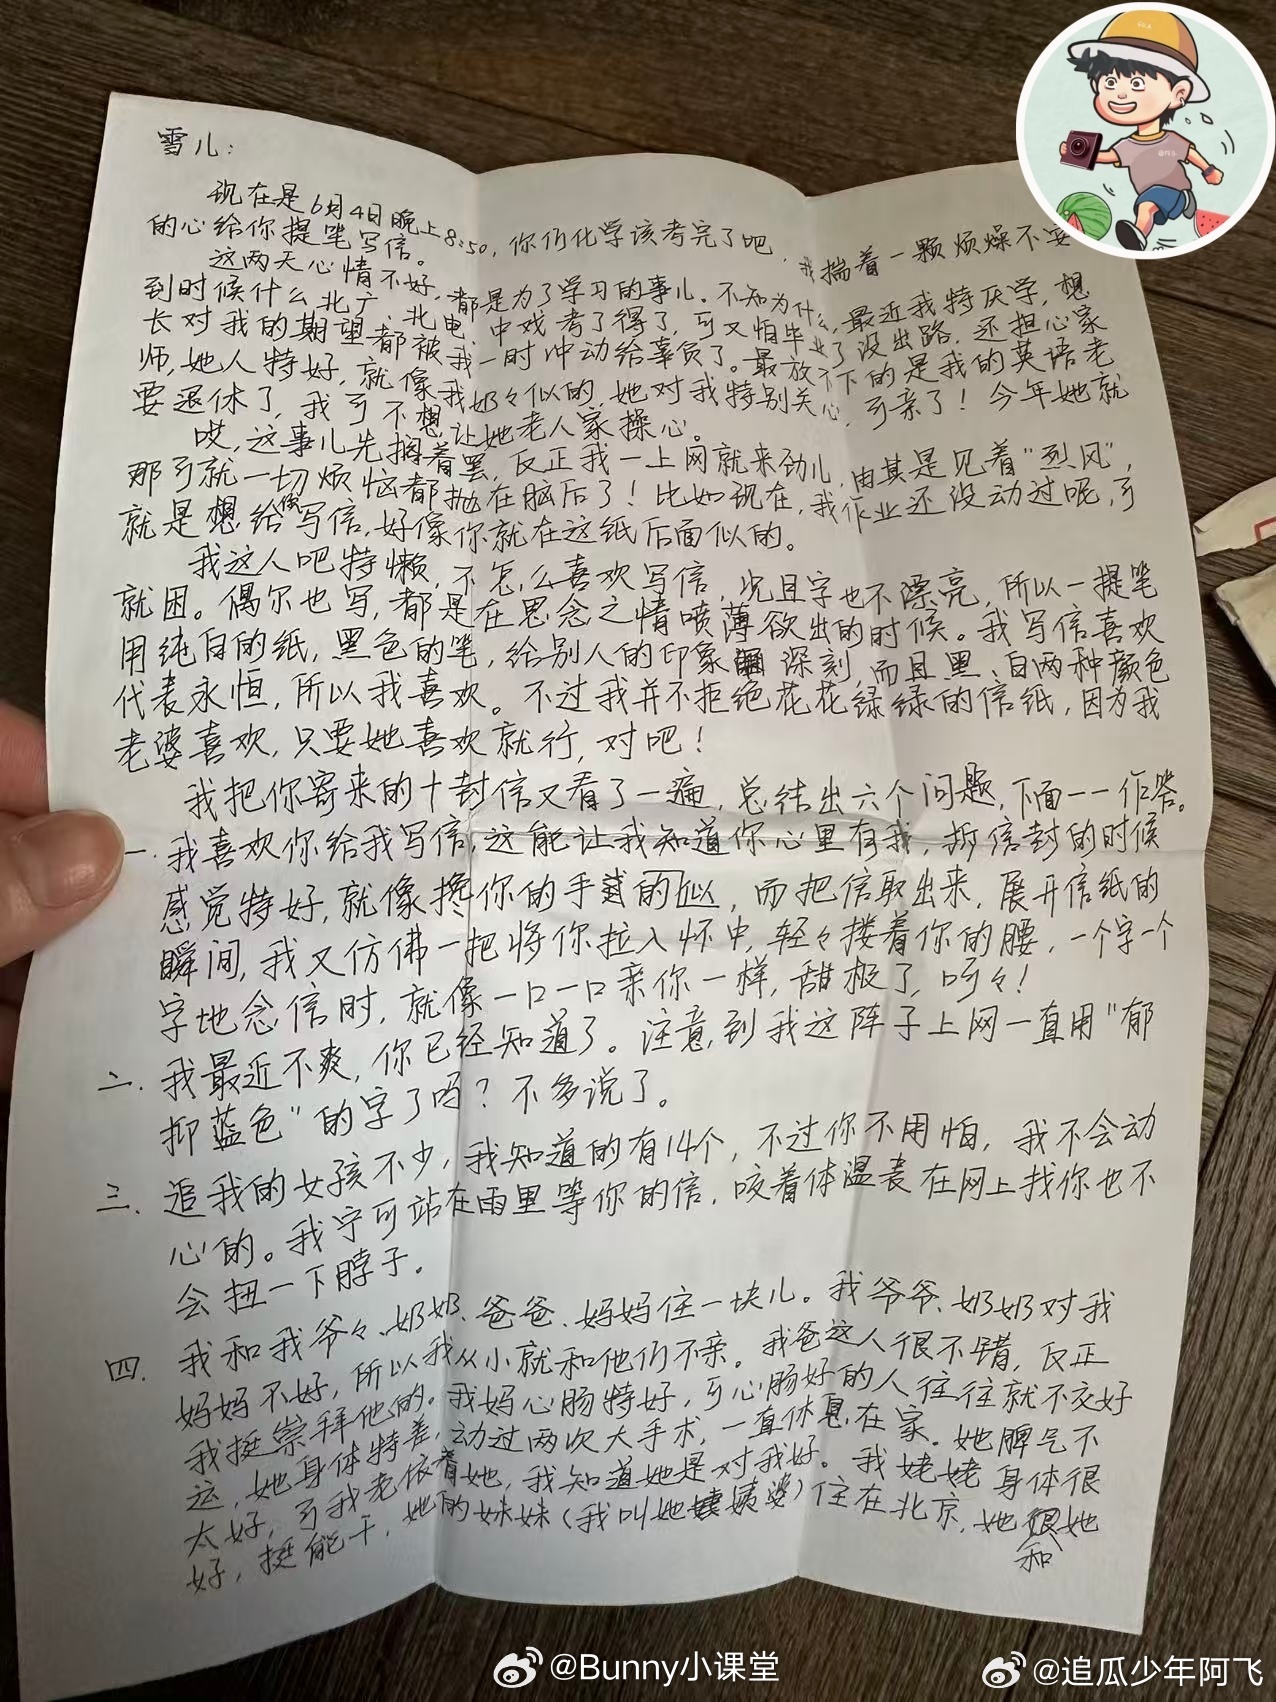 雪儿：
现在是6月4日晚上8:50，你们化学该考完了吧，我揣着一颗烦燥不安
的心给你提笔写信。
这两天心情不好，都是为了学习的事儿。不知为什么，最近我特厌学，想
到时候什么北广、北电、中戏考了得了，可又怕毕业了没出路，还担心家
长对我的期望都被我一时冲动给辜负了。最放不下的是我的英语老
师，她人特好，就像我奶々似的，她对我特别关心，可亲了！今年她就
要退休了，我可不想让她老人家操心。
哎，这事儿先搁着罢，反正我一上网就来劲儿，由其是见着“烈风”，
那可就一切烦恼都抛在脑后了！比如现在，我作业还没动过呢，可
就是想给你写信，好像你就在这纸后面似的。
我这人吧特懒，不怎么喜欢写信，况且字也不漂亮，所以一提笔
就困。偶尔也写，都是在思念之情喷薄欲出的时候。我写信喜欢
用纯白的纸，黑色的笔，给别人的印象深刻，而且黑、白两种颜色
代表永恒，所以我喜欢。不过我并不拒绝花花绿绿的信纸，因为我
老婆喜欢，只要她喜欢就行，对吧！
我把你寄来的十封信又看了一遍，总结出六个问题，下面一一作答。
一.我喜欢你给我写信，这能让我知道你心里有我，拆信封的时候
感觉特好，就像搀你的手似的，而把信取出来，展开信纸的
瞬间，我又仿佛一把将你拉入怀中，轻々搂着你的腰，一个字一个
字地念信时，就像一口一口亲你一样，甜极了，呵々！
二.我最近不爽，你已经知道了。注意到我这阵子上网一直用“郁
抑蓝色”的字了吗？不多说了。
三.追我的女孩不少，我知道的有14个，不过你不用怕，我不会动
心的。我宁可站在雨里等你的信，咬着体温表在网上找你也不
会扭一下脖子。
四.我和我爷々、奶奶、爸爸、妈妈住一块儿。我爷爷、奶奶对我
妈妈不好，所以我从小就和他们不亲。我爸这人很不错，反正
我挺崇拜他的。我妈心肠特好，可心肠好的人往往就不交好
运，她身体特差，动过两次大手术，一直休息在家。她脾气不
太好，可我老依着她，我知道她是对我好。我姥姥身体很
好，挺能干，她的妹妹（我叫她姨婆）住在北京，她和她
@Bunny小课堂
@追瓜少年阿飞